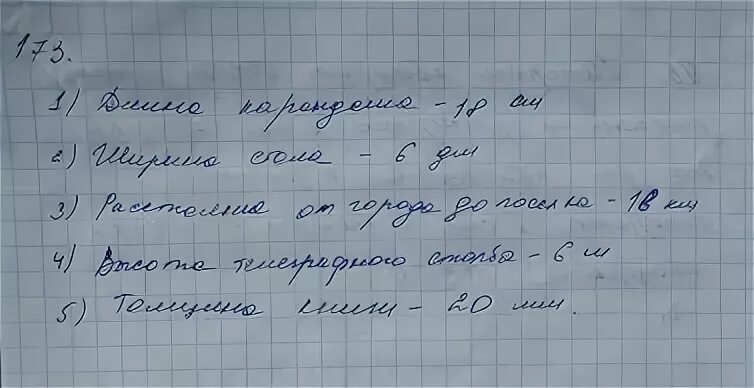 173.
1) Длина карандаша - 18 см
2) Ширина стола - 6 дм
3) Расстояние от города до поселка - 18 км
4) Высота телеграфного столба - 6 м
5) Толщина книги - 20 мм.